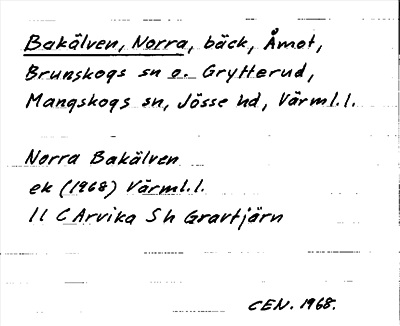 Bakälven, Norra, bäck, Åmot,
Brunskogs sn o. Grytterud,
Mangskogs sn, Jösse hd, Värml.l.
Norra Bakälven
ek (1968) Värml.l.
11 C Arvika S h Gravtjärn
CEN. 1968.